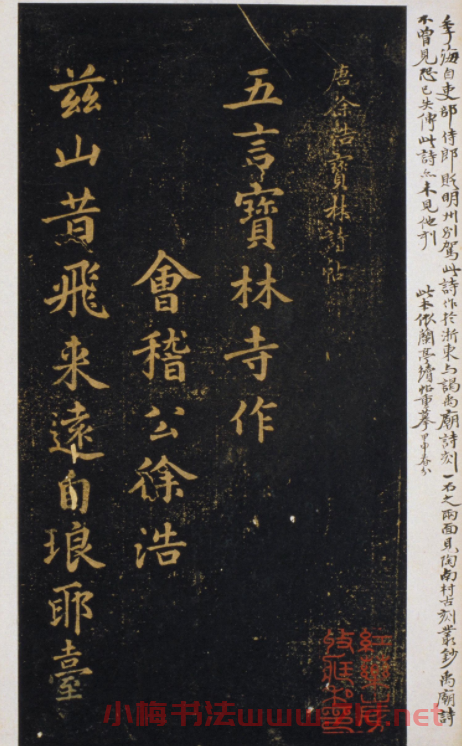 季海自吏部侍郎貶明州別駕此詩作於浙東与謁禹廟詩刻一石之兩面見陶南村古刻叢鈔禹廟詩
不曾見恐已失傳此詩亦未見他刊
此本依蘭亭續帖重摹甲申春分
唐徐浩寶林詩帖
五言寶林寺作
會稽公徐浩
茲山昔飛来遠自琅耶臺
小梅书法www.
.net